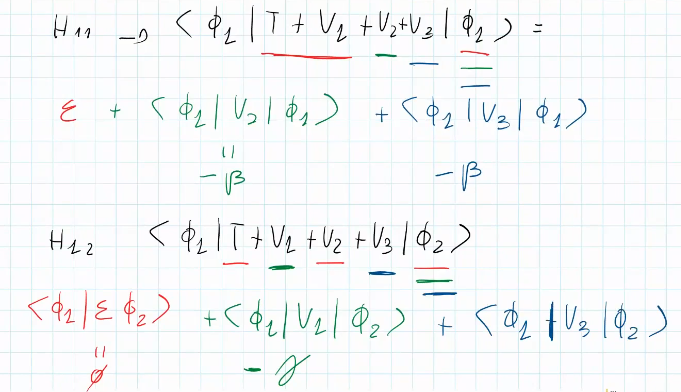 H₁₁ → ⟨ϕ₁|T + V₁ + V₂ + V₃|ϕ₁⟩ =
ε + ⟨ϕ₁|V₂|ϕ₁⟩ + ⟨ϕ₁|V₃|ϕ₁⟩
= -β -β
H₁₂ ⟨ϕ₁|T + V₁ + V₂ + V₃|ϕ₂⟩
⟨ϕ₁|εϕ₂⟩ + ⟨ϕ₁|V₁|ϕ₂⟩ + ⟨ϕ₁|V₃|ϕ₂⟩
= ∅ -γ